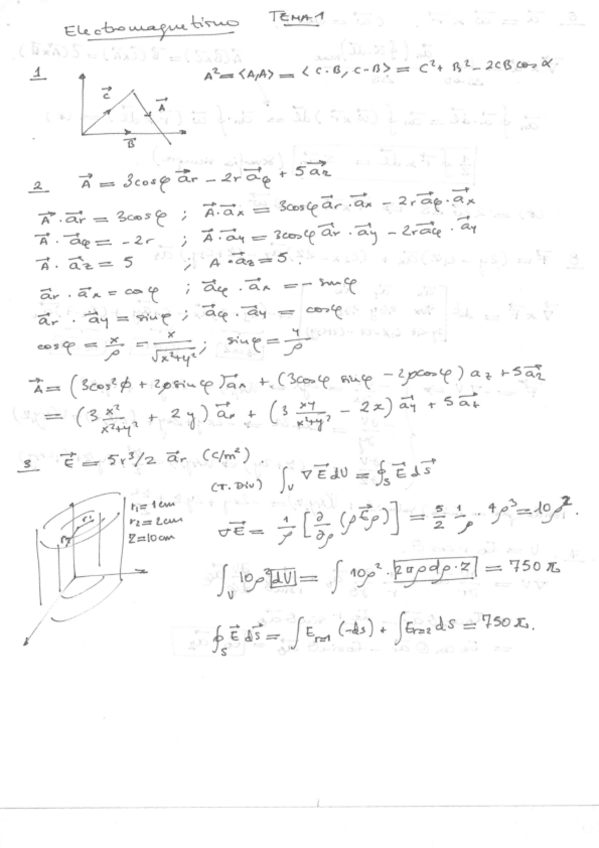 Electromagnetismo TEMA 1
1 A² = <A,A> = <C-B, C-B> = C² + B² - 2CB cos α
C⃗ A⃗
B⃗
2 A⃗ = 3cosφ a⃗r - 2r a⃗φ + 5a⃗z
A⃗ · a⃗r = 3cosφ ; A⃗ · a⃗x = 3cosφ a⃗r · a⃗x - 2r a⃗φ · a⃗x
A⃗ · a⃗φ = -2r ; A⃗ · a⃗y = 3cosφ a⃗r · a⃗y - 2r a⃗φ · a⃗y
A⃗ · a⃗z = 5 ; A · a⃗z = 5.
a⃗r · a⃗x = cosφ ; a⃗φ · a⃗x = - sinφ
a⃗r · a⃗y = sinφ ; a⃗φ · a⃗y = cosφ
cosφ = x/ρ = x/√(x²+y²) ; sinφ = y/ρ
A⃗ = (3cos²ϕ + 2ρ sinφ) a⃗x + (3cosφ sinφ - 2ρcosφ) az + 5a⃗z
= (3 x²/(x²+y²) + 2y) a⃗x + (3 xy/(x²+y²) - 2x) a⃗y + 5a⃗z
3 E⃗ = 5r³/2 a⃗r (C/m²).
(T. Div) ∫v ∇E⃗dV = ∮s E⃗ds⃗
r1 = 1cm
r2 = 2cm
Z = 10cm
∇E⃗ = 1/ρ [∂/∂ρ (ρE⃗ρ)] = 5/2 1/ρ · 4ρ³ = 10ρ².
∫v 10ρ² dV = ∫ 10ρ² · 2πρdρ·Z = 750π
∮s E⃗ ds⃗ = ∫Er=1 (-ds) + ∫Er=2 ds = 750π.